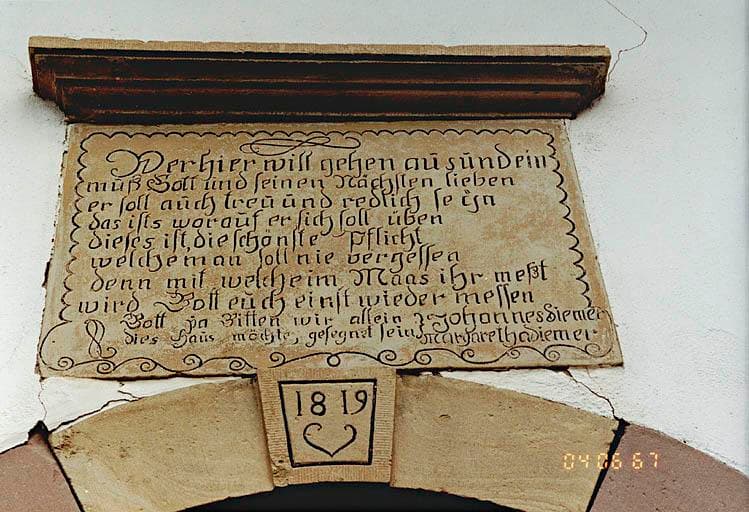 Wer hier will gehen aus und ein
muß Gott und seinen Nächsten lieben
er soll auch treu und redlich seÿn
das ists worauf er sich soll üben
dieses ist die schönste Pflicht
welche man soll nie vergessen
denn mit welcheim Maas ihr meßt
wird Gott euch einst wieder messen
Gott Bitten wir allein Johannes Diemer
dies Haus möchte, gesegnet sein Margaretha Diemer
1819
04 06 67